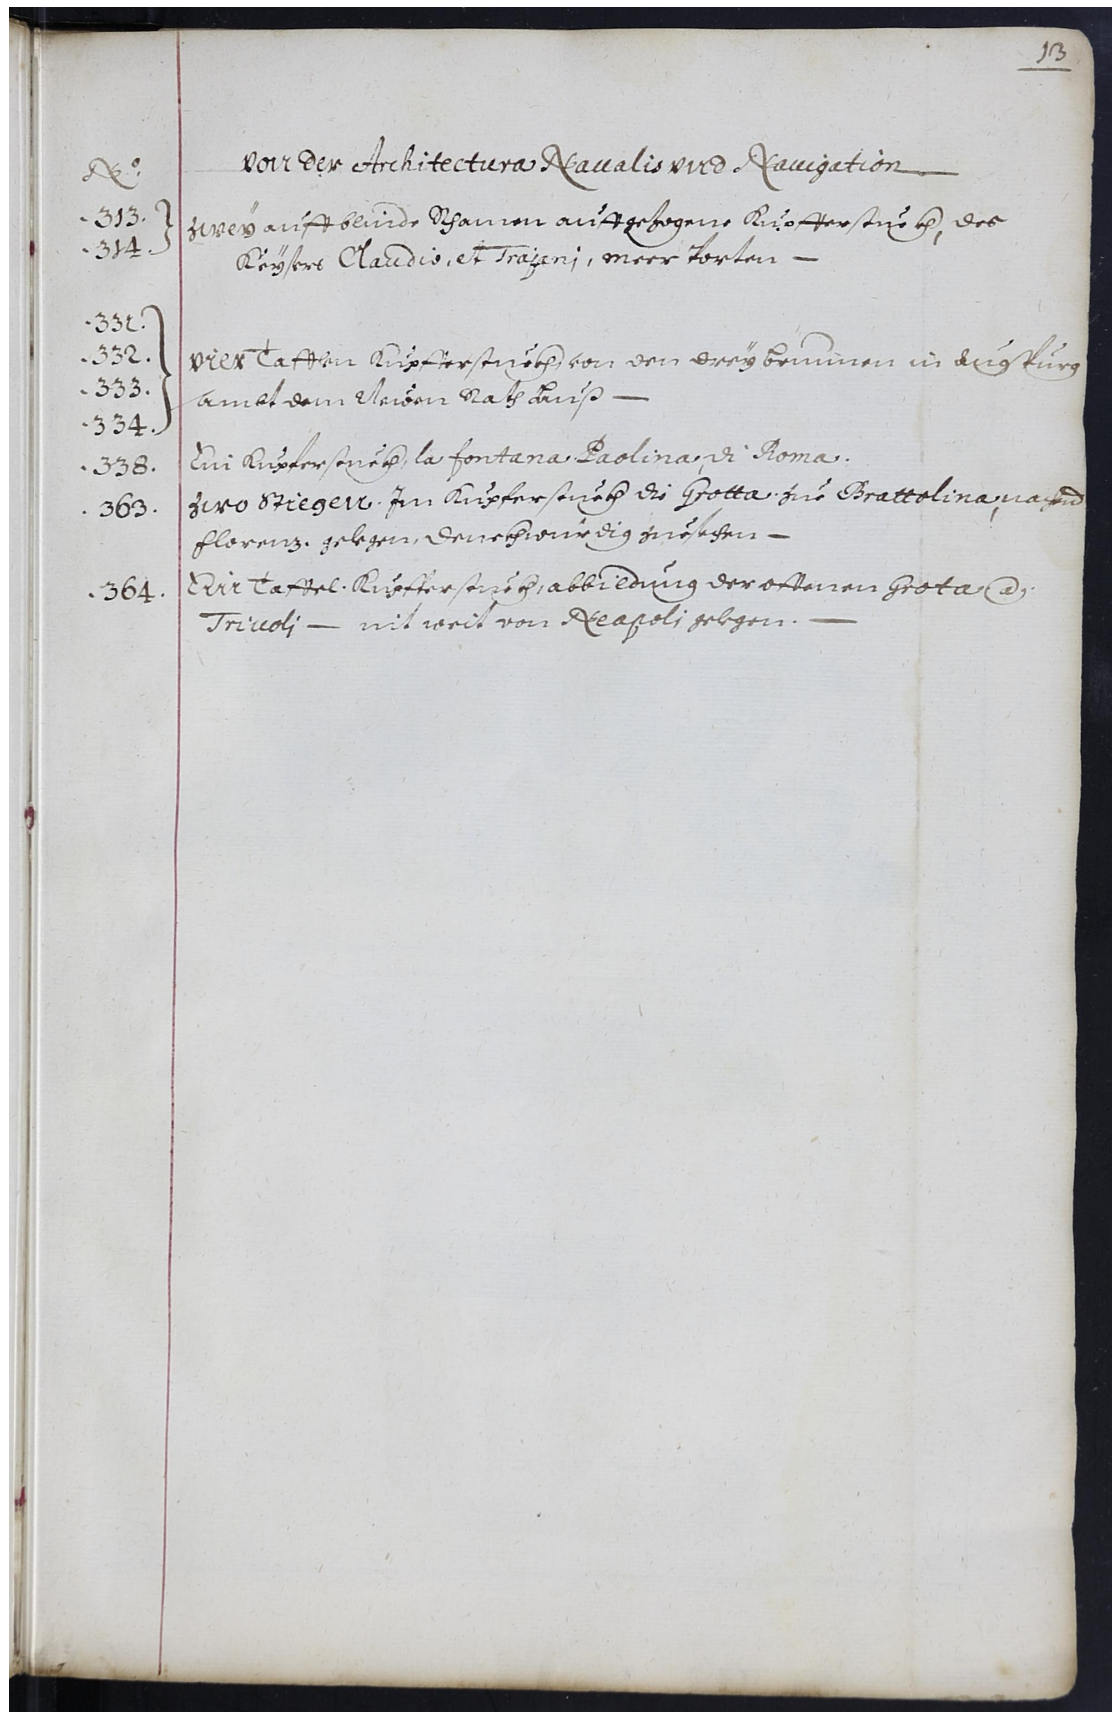 13
No: von der Architectura Naualis vnd Nauigation
313. zweÿ auff blinde Rhamen auffgezogene Kupfferstuckh, des
314. Keÿsers Claudio, et Trajanj, meer Porten —
331.
332. vier Tafflen Kupfferstuckh, von den dreÿ brunnen in Augspurg
333. samt dem Newen Rath hauß —
334.
338. Ein Kupferstuckh, la fontana Paolina, di Roma.
363. zwo Stiegen. Jm Kupferstuckh die Grotta zue Brattolina, nachend
florenz. gelegen, denckhwürdig zuesehen —
364. Ein Taffel. Kupfferstuckh, abbildung der offenen Grota a,
Triuolj — nit weit von Neapolj gelegen. —